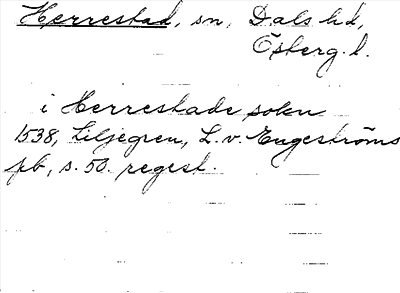 Herrestad, sn, Dals hd,
Östberg. l.
i Herrestade sokn
1538, Liljegren, L. v. Engeströms
pb, s. 50. regest.